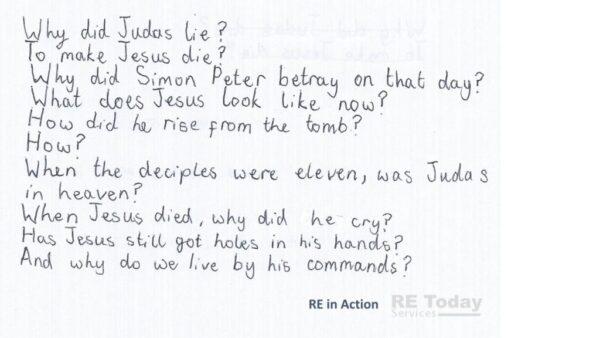 Why did Judas lie?
To make Jesus die?
Why did Simon Peter betray on that day?
What does Jesus look like now?
How did he rise from the tomb?
How?
When the deciples were eleven, was Judas
in heaven?
When Jesus died, why did he cry?
Has Jesus still got holes in his hands?
And why do we live by his commands?
RE in Action
RE Today
Services